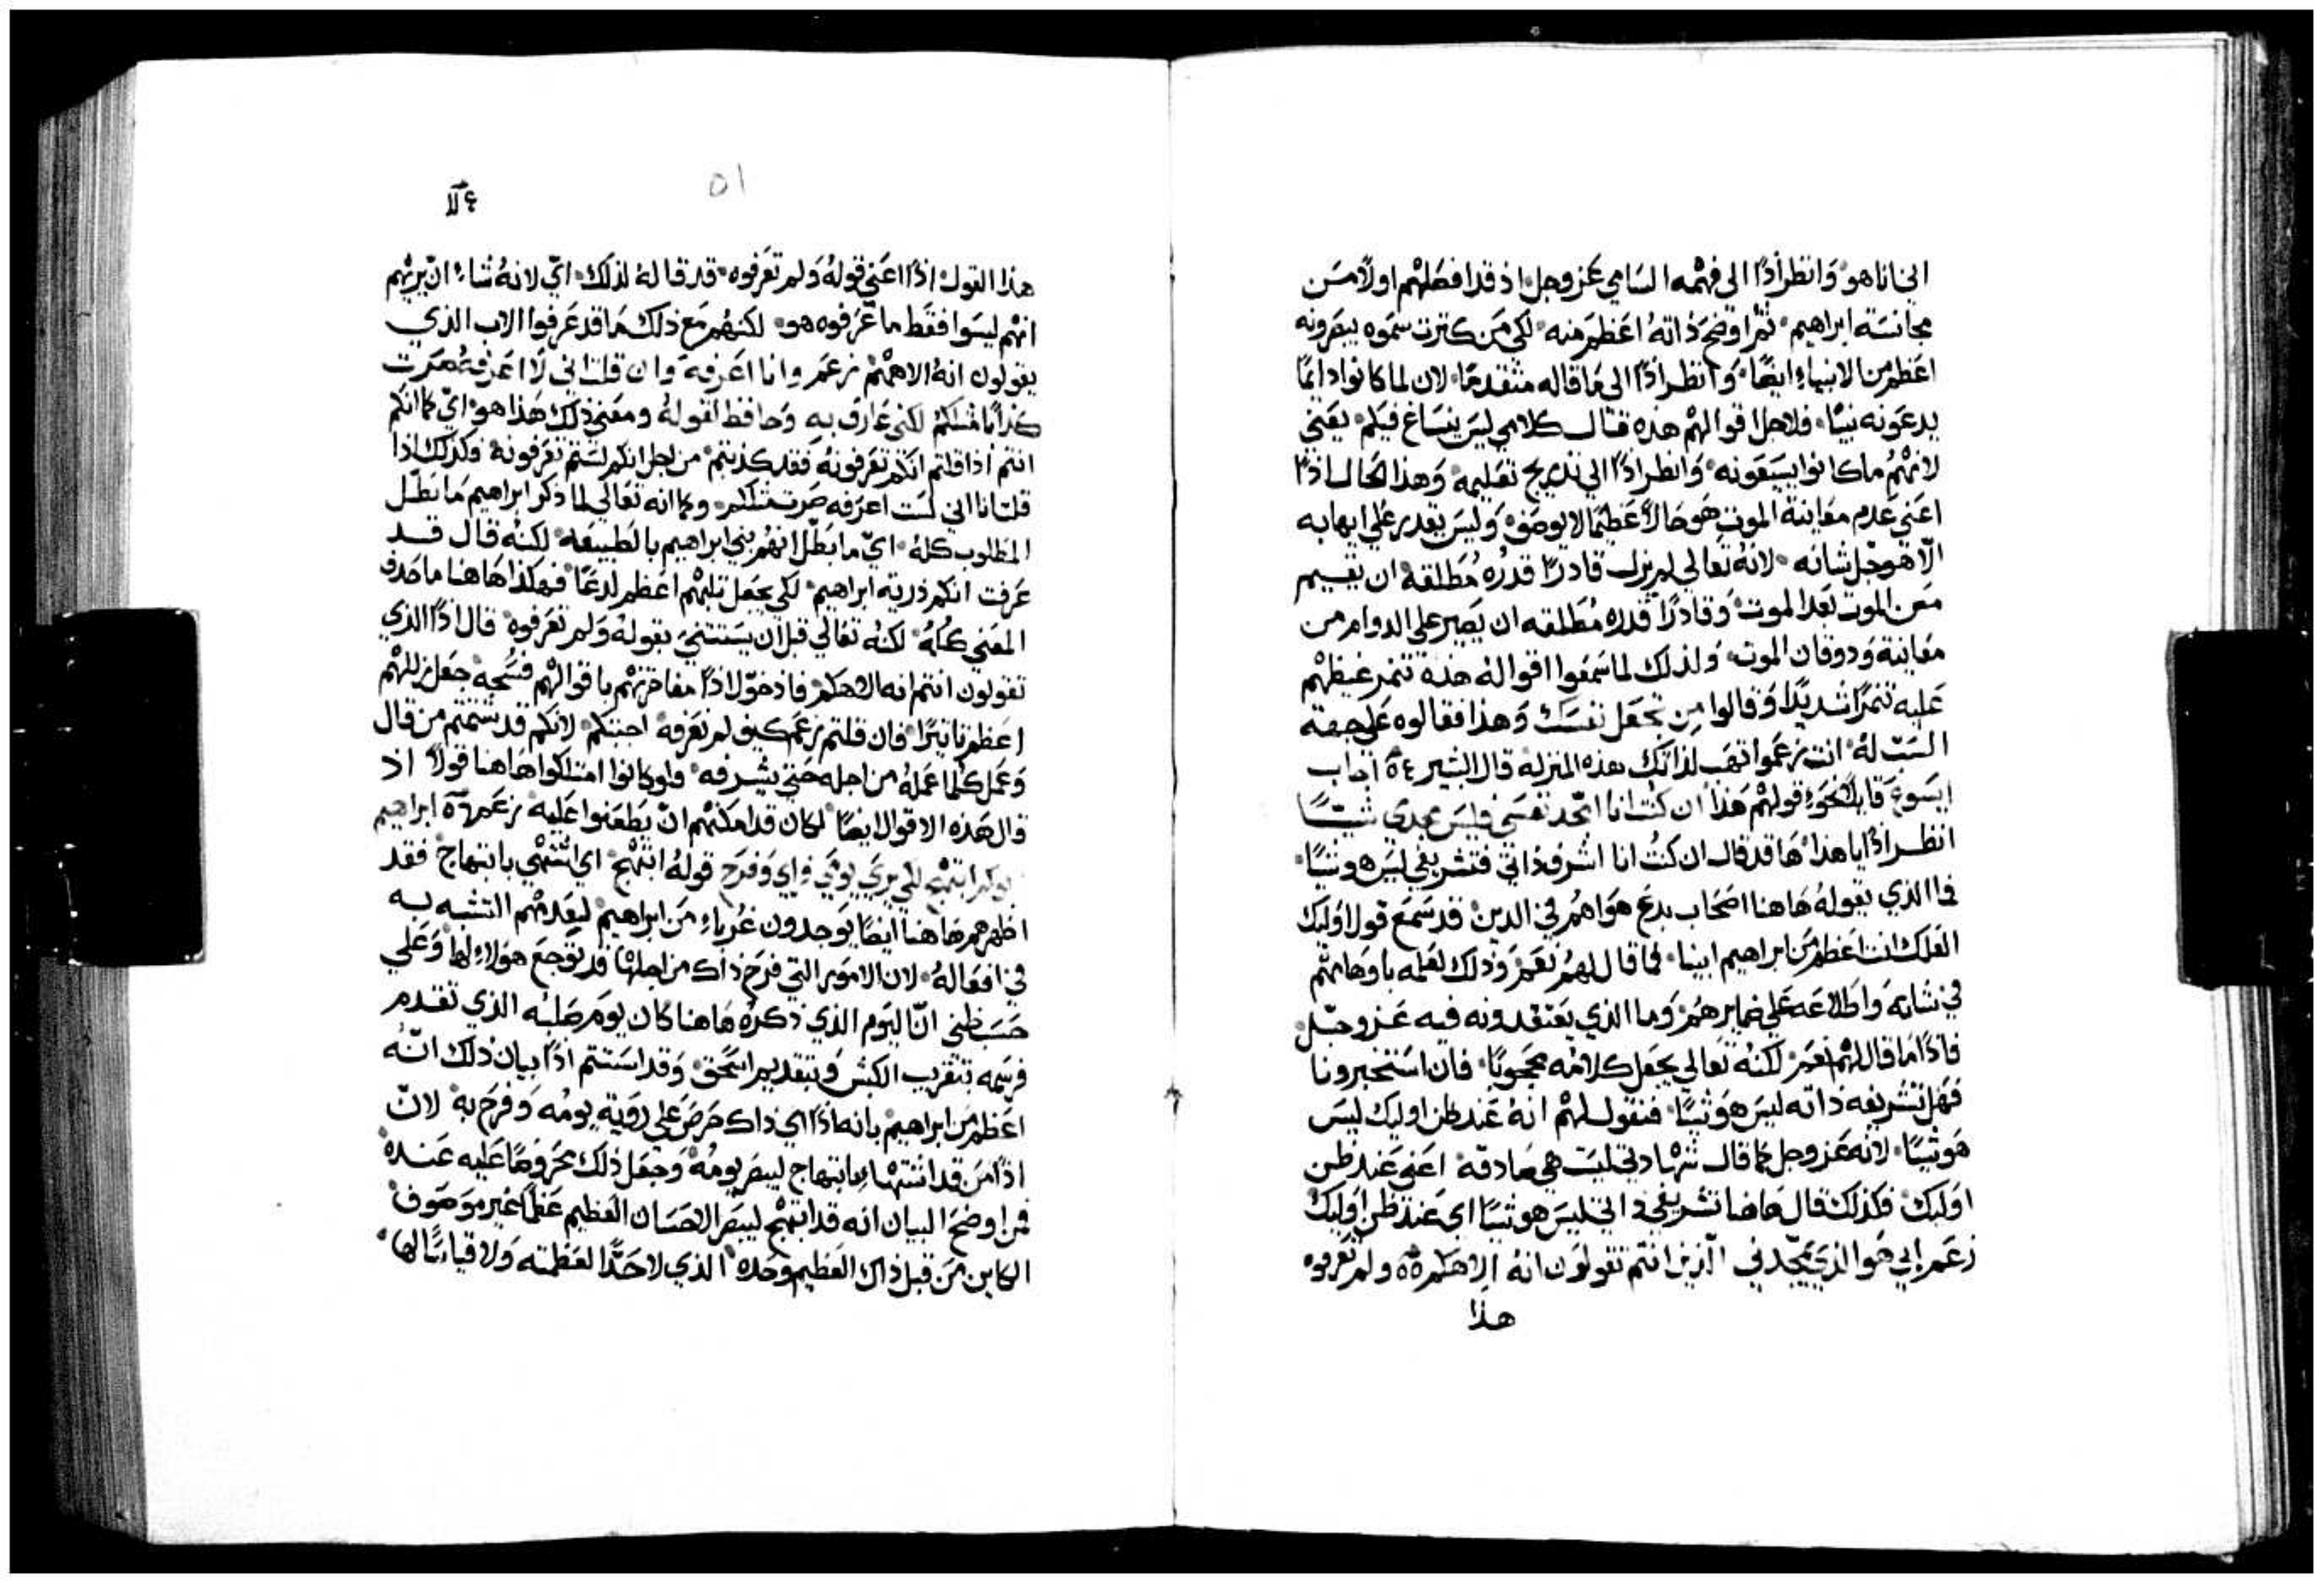 اني انا هو وانظر اذًا الى فهمه السامي عز وجل اذ قد افصلهم اولًا من
مجانسة ابراهيم ثم اوضح ذاته اعظم منه لكي من كثرت سموه يبصرونه
اعظم من الانبياء ايضًا وانظر اذًا الى ما قاله متقدمًا لان لما كانوا دائمًا
يدعونه نبيًا فلاجل اقوالهم هذه قال كلامي ليس ينساغ فيكم يعني
لانهم ما كانوا يسيغونه وانظر اذًا الي تدريج تعليمه وهذا الحال اذًا
اعني عدم معاينة الموت هو حالًا عظيمًا لا يوصف وليس يقدر علي ايهابه
الّا هو جل شانه لانه تعالي لم يزل قادرًا قدره مطلقة ان يقيم
من الموت بعد الموت وقادرًا قدره مطلقه ان يصير علي الدوام من
معاينة وذوقان الموت ولذلك لما سمعوا اقواله هذه تنمر غيظهم
عليه تنمرًا شديدًا وقالوا من تجعل نفسك وهذا فقالوه علي جهة
السب له انت زعموا تهب لذاتك هذه المنزله قال البشير ٥٤ اجاب
ايسوع قايلًا نحو قولهم هذا ان كنت انا امجد نفسي فليس مجدي شيًّا
انظر اذًا يا هذا ها قد قال ان كنت انا اشرف ذاتي فتشريفي ليس هو شيًّا
فما الذي يقوله هاهنا اصحاب بدع هواهم في الدين قد سمع قول اوليك
العلك انت اعظم من ابراهيم ابينا فما قال لهم نعم وذلك لعلمه باوهامهم
في شانه واطلاعه علي ضمايرهم وما الذي يعتقدونه فيه عز وجل
فاذًا ما قال لهم نعم لكنه تعالي يجعل كلامه محجوبًا فان استخبرونا
فهل تشريفه ذاته ليس هو شيًّا فنقول لهم انه عند ظن اوليك ليس
هو شيًّا لانه عز وجل كما قال شهادتي ليست هي صادقة اعني عند ظن
اوليك فكذلك قال هاهنا تشريفي ذاتي ليس هو شيًّا اي عند ظن اوليك
زعم ابي هو الذي يمجدني الذين انتم تقولون انه الاهكم ٥٥ ولم تعرفوه
هذا
٥١
هذا القول اذًا اعني قوله ولم تعرفوه قد قاله لذلك اي لانه شاء ان يريهم
انهم ليسوا فقط ما عرفوه هو لكنهم مع ذلك ما قد عرفوا الاب الذي
يقولون انه الاههم زعم وانا اعرفه وان قلت اني لا اعرفه صرت
كذابًا مثلكم لكني عارف به وحافظ لقوله ومعني ذلك هذا هو اي كما انكم
انتم اذا قلتم انكم تعرفونه فقد كذبتم من اجل انكم لستم تعرفونه فكذلك اذا
قلت انا اني لست اعرفه صرت مثلكم وكما انه تعالي لما ذكر ابراهيم ما بطّل
المطلوب كله اي ما بطّل انهم بني ابراهيم بالطبيعه لكنه قال قد
عرفت انكم ذرية ابراهيم لكي يجعل ثلبهم اعظم لدعًا فهكذا هاهنا ما حذف
المعني كله لكنه تعالي قبل ان يستثني بقوله ولم تعرفوه قال اذًا الذي
تقولون انتم انه الاهكم فاذ خوّلا اذًا مفاخرتهم باقوالهم فسحة جعل زللهم
اعظم تاثيرًا فان قلتم زعم كيف لم نعرفه اجبتكم لانكم قد شتمتم من قال
وعمل كلما عمله من اجله حتي يشرفه فلو كانوا امتلكوا هاهنا قولًا اذ
قال هذه الاقوال ايضًا لكان قد امكنهم ان يطعنوا عليه زعم ٥٦ ابراهيم
ابوكم ابتهج لكي يري يومي فراي وفرح قوله ابتهج اي اشتهي بابتهاج فقد
اظهرهم هاهنا ايضًا يوجدون غرباء من ابراهيم ليعدمهم التشبه به
في افعاله لان الامور التي فرح ذاك من اجلها قد توجع هولاء لها وعلي
حسب ظني انّ اليوم الذي ذكره هاهنا كان يوم صلبه الذي تقدم
فرسمه بتقريب الكبش وبتقديم اسحق وقد استتم اذًا بيان ذلك انّه
اعظم من ابراهيم بانه اذًا اي ذاك حرص علي روية يومه وفرح به لانّ
اذًا من قد اشتها بابتهاج ليبصر يومه وجعل ذلك محروصًا عليه عنده
فمن اوضح البيان انه قد ابتهج ليبصر الاحسان العظيم عظمًا غير موصوف
الكاين من قبل ذاك العظيم وحده الذي لا حدًّا لعظمته ولا قياسًا لها